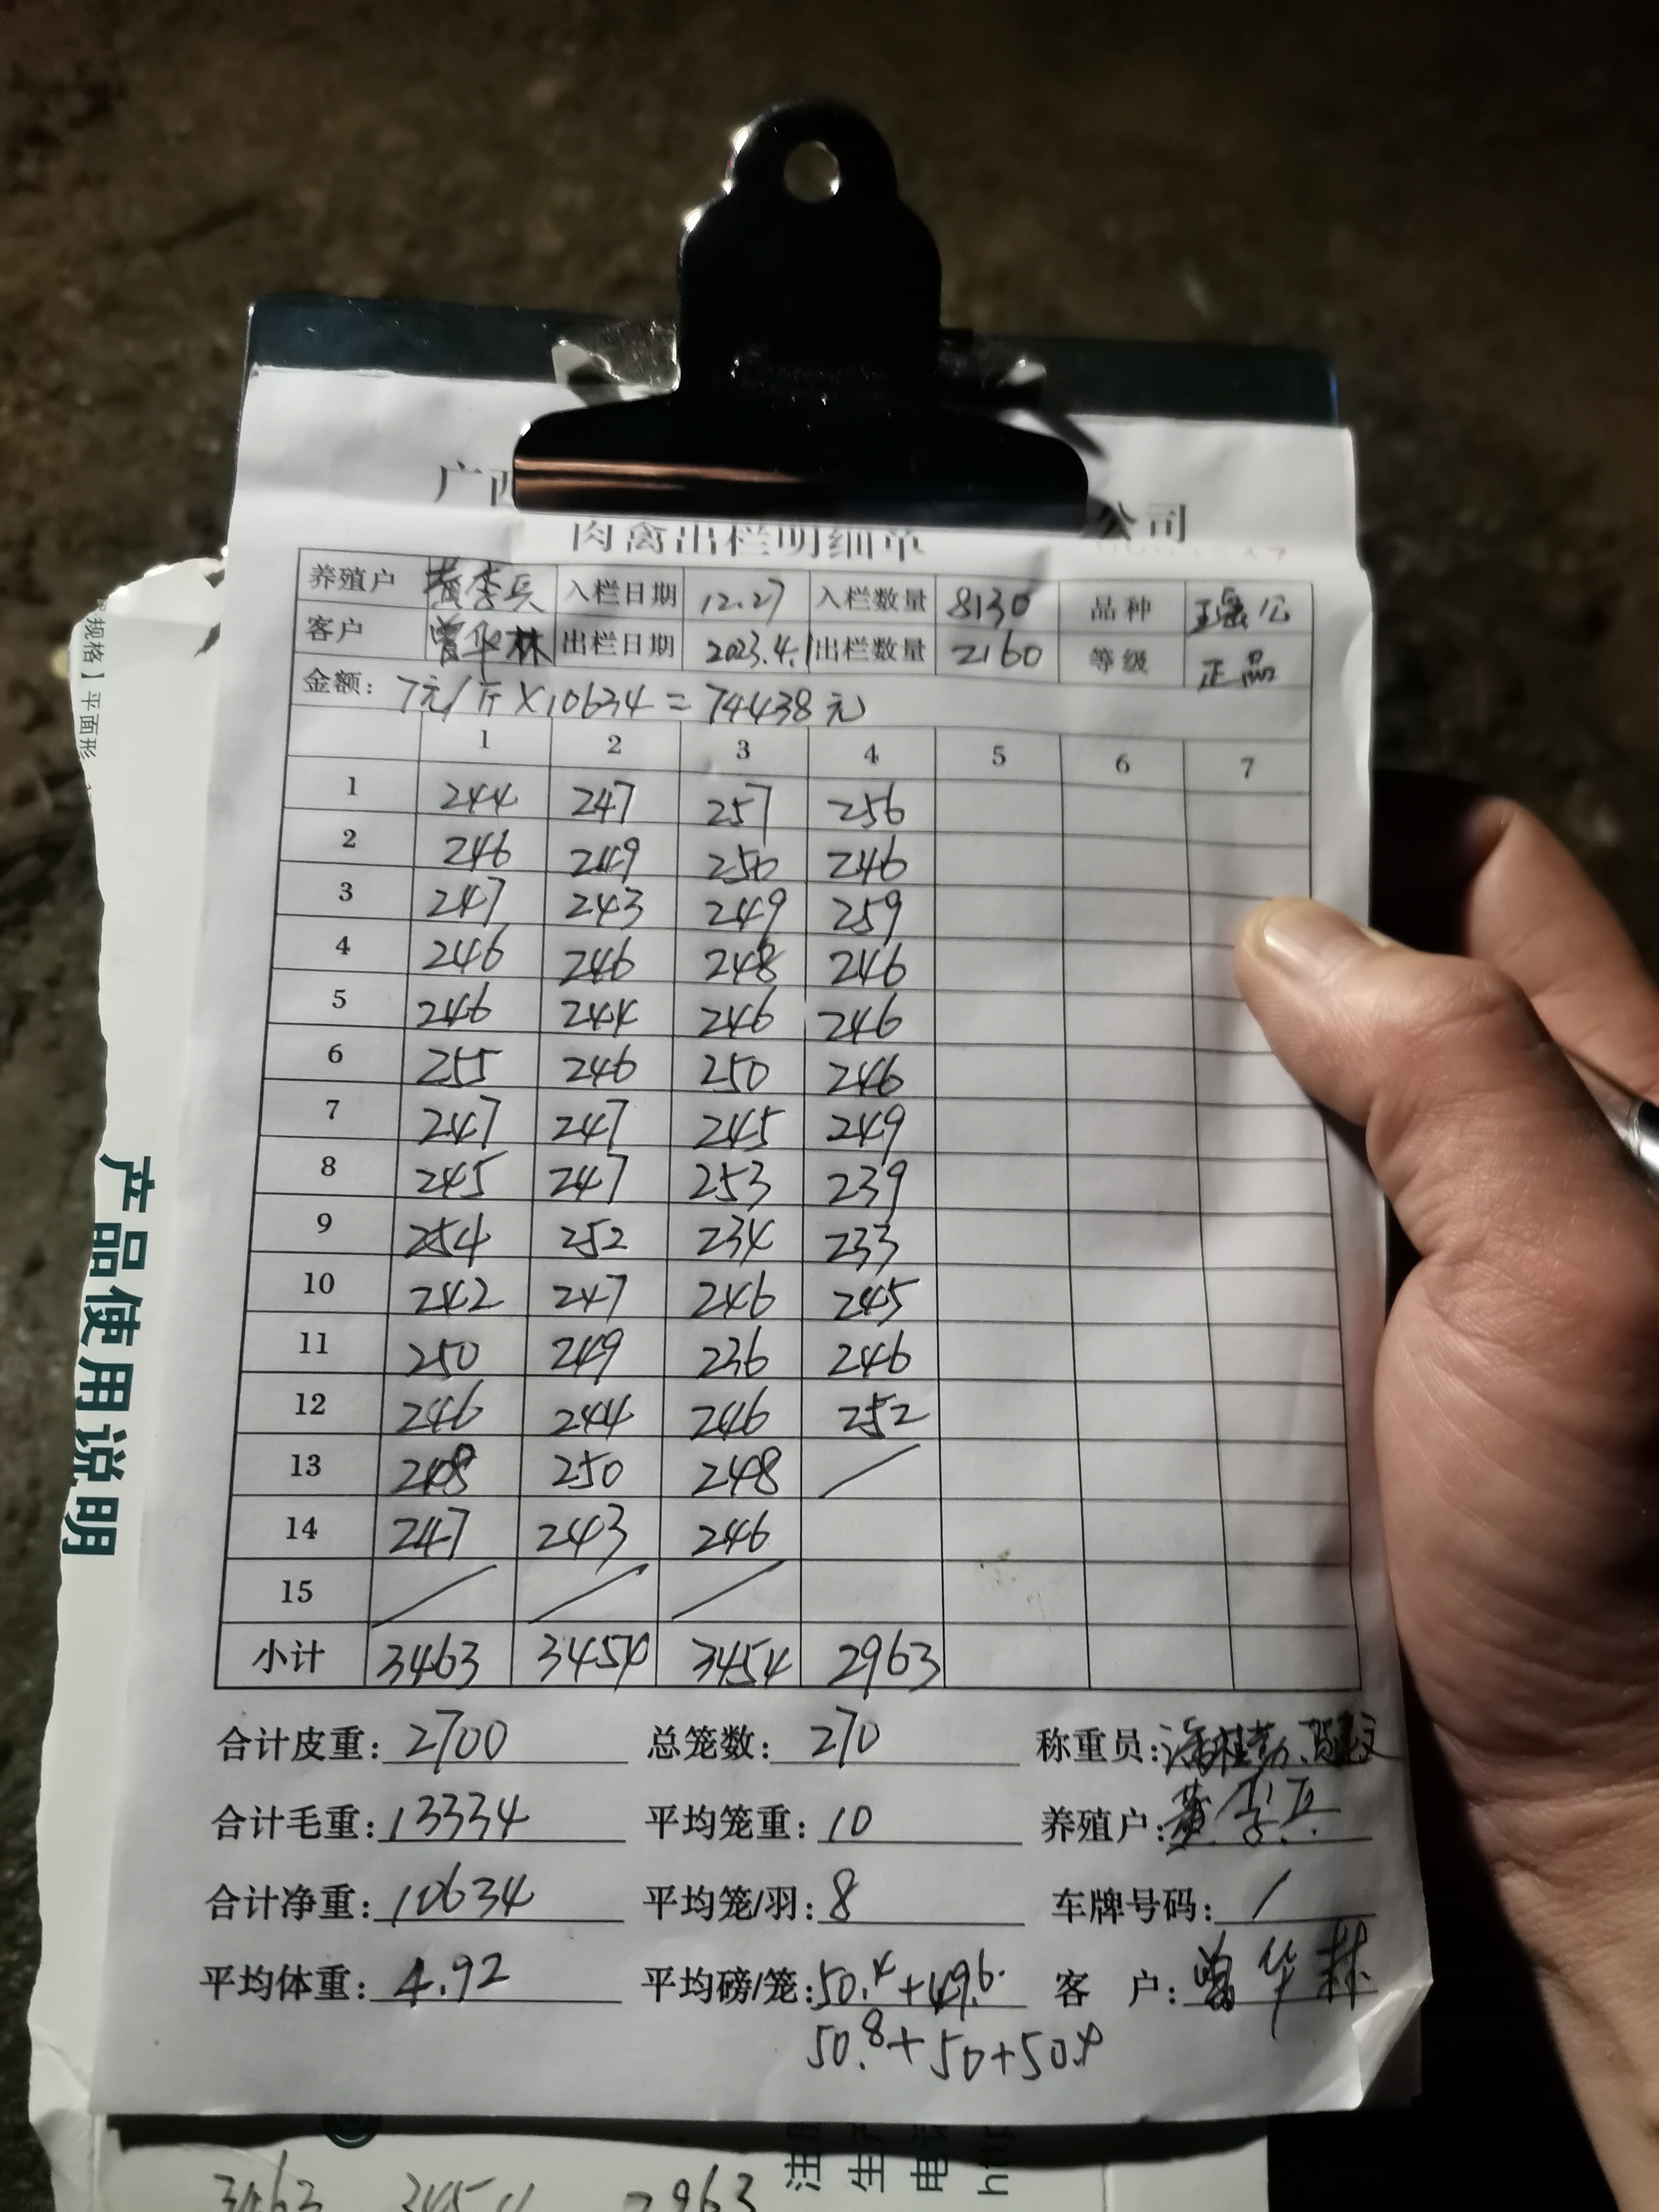 广西 公司
肉禽出栏明细单
养殖户 黄李兵 入栏日期 12.27 入栏数量 8130 品种 瑶公
客户 曾华林 出栏日期 2023.4.1 出栏数量 2160 等级 正品
金额: 7元/斤×10634=74438元
1 2 3 4 5 6 7
1 244 247 257 256
2 246 249 250 246
3 247 243 249 259
4 246 246 248 246
5 246 244 246 246
6 255 246 250 246
7 247 247 245 249
8 245 247 253 239
9 254 252 234 233
10 242 247 246 245
11 250 249 236 246
12 246 244 246 252
13 248 250 248 /
14 247 243 246
15 / / /
小计 3463 3454 3454 2963
合计皮重: 2700 总笼数: 270 称重员:
合计毛重: 13334 平均笼重: 10 养殖户: 黄李兵
合计净重: 10634 平均笼/羽: 8 车牌号码: /
平均体重: 4.92 平均磅/笼: 50.4+49.6 客 户: 曾华林
50.8+50+50.4
规格】平面形
产品使用说明
3463 3454 2963
注册
生产
电话
http